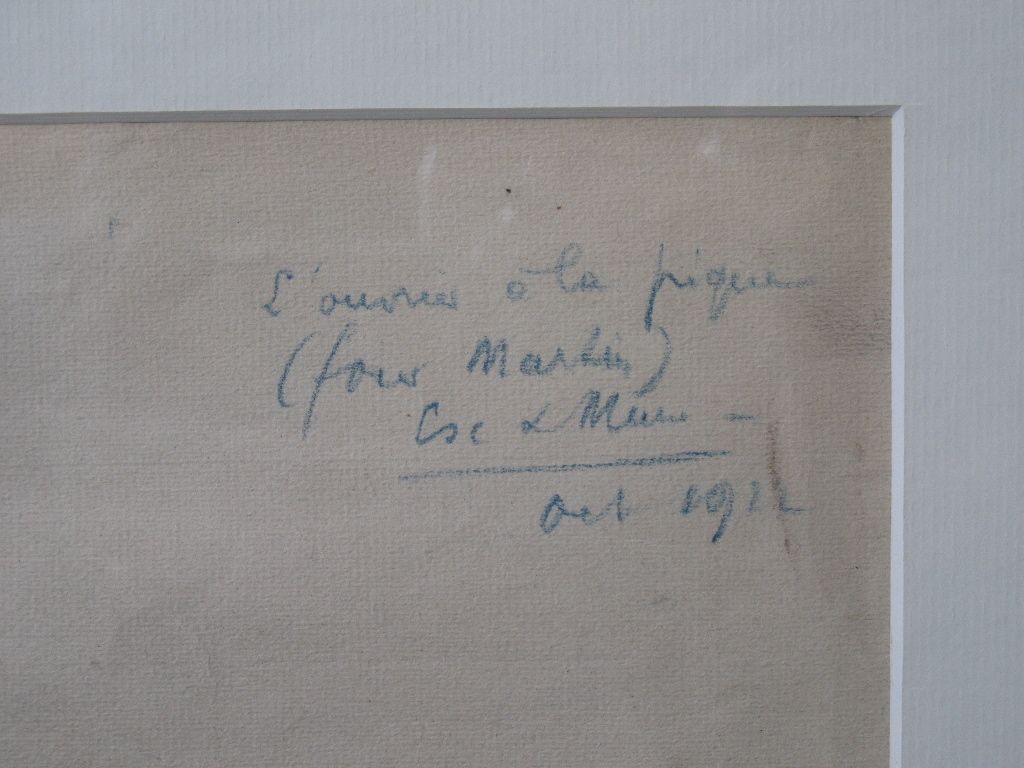 L'ouvrier à la pique
(four Martin)
Esc & Meu -
Oct 1922